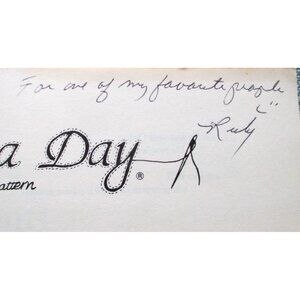 For one of my favorite people
Ruby
a Day®
attern